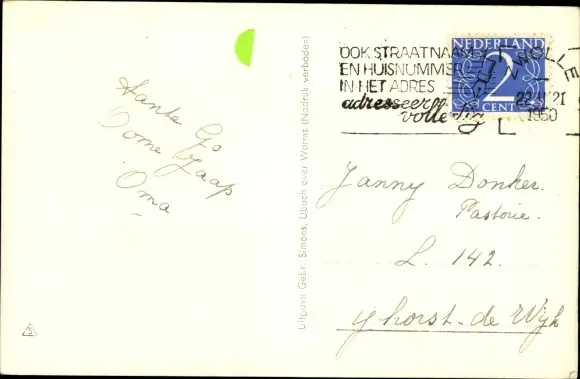 Tante Go
Oome Jaap
Oma
Uitgave Gebr. Simons, Ubach over Worms (Nadruk verboden)
S
OOK STRAATNAAM
EN HUISNUMMER
IN HET ADRES
adresseer
volledig
NEDERLAND
2
CENT
ZWOLLE
1950
Janny Donker.
Pastorie.
L. 142.
Yhorst-de Wijk